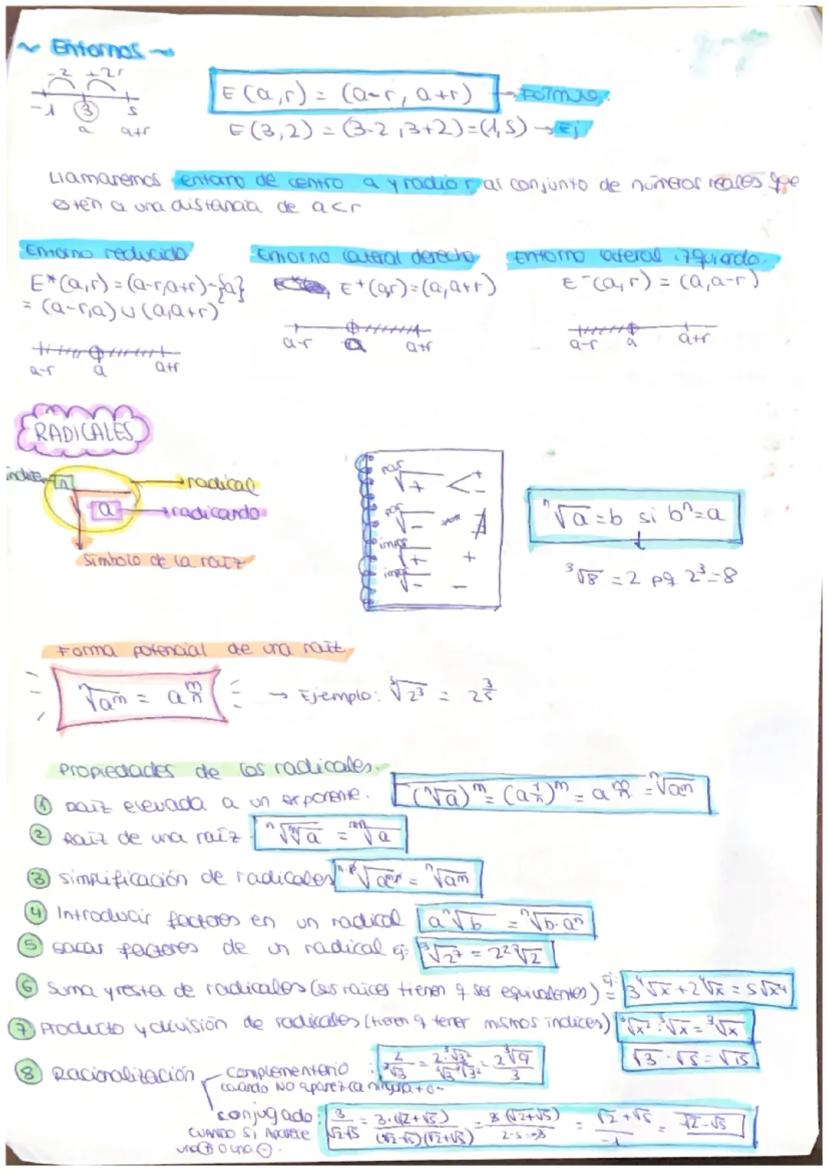 ~ Entornos ~
-2 +2r
-1 3 5
a a+r
E(a,r) = (a-r, a+r) → Fórmula
E(3,2) = (3-2, 3+2)=(1,5) → Ej
Llamaremos entorno de centro a y radio r al conjunto de números reales que
estén a una distancia de a<r
Entorno reducido
E*(a,r) = (a-r,a+r)-{a}
= (a-r,a) ∪ (a,a+r)
a-r a a+r
Entorno lateral derecho
E⁺(a,r)=(a,a+r)
a-r a a+r
Entorno lateral izquierdo.
E⁻(a,r) = (a,a-r)
a-r a a+r
RADICALES
indice n → radical
a → radicando
símbolo de la raíz
par √+ < + -
par √- ∄
impar √+ +
impar √- -
ⁿ√a = b si bⁿ=a
³√8 = 2 pq 2³=8
Forma potencial de una raíz
ⁿ√aᵐ = a^(m/n) → Ejemplo: ⁵√2³ = 2^(3/5)
Propiedades de los radicales.
① Raíz elevada a un exponente. (ⁿ√a)ᵐ = (a^(1/n))ᵐ = a^(m/n) = ⁿ√aᵐ
② Raíz de una raíz ⁿ√ᵐ√a = ᵐⁿ√a
③ Simplificación de radicales = ⁿ√aᵐ
④ Introducir factores en un radical a ⁿ√b = ⁿ√b·aⁿ
⑤ sacar factores de un radical ej: ³√2⁷ = 2² ³√2
⑥ Suma y resta de radicales (las raíces tienen q ser equivalentes) ej: 3⁴√x + 2⁴√x = 5
⑦ Producto y división de radicales (tienen q tener mismos indices) ³√x² : ³√x = ³√x
√3 · √5 = √15
⑧ Racionalización complementario : 2/³√3 = 2·³√3²/³√3·³√3² = 2³√9/3
cuando NO aparezca ningún + o -
conjugado: 3/√2-√5 = 3·(√2+√5)/(√2-√5)(√2+√5) = 3(√2+√5)/2-5=-3 = √2+√5/-1 = √2-√5
CUANDO SI APARECE
un ⊕ o un ⊖.